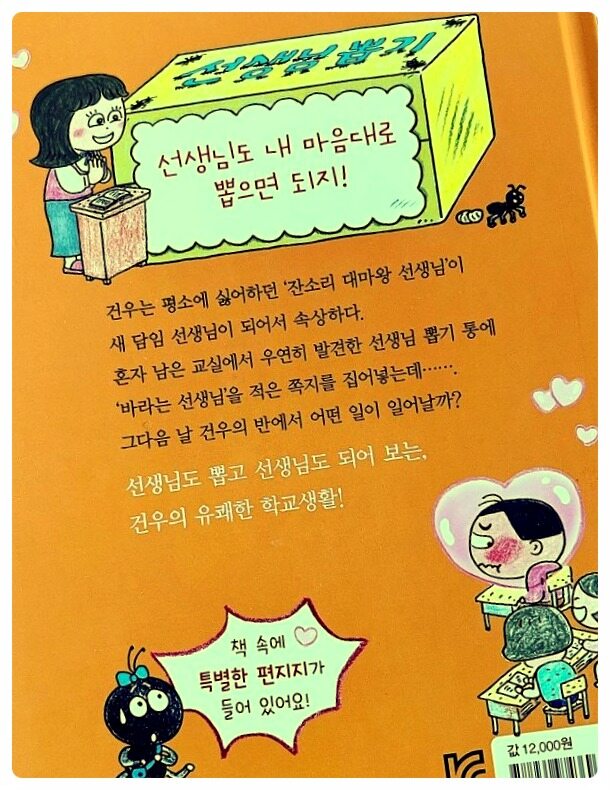 선생님 뽑기
선생님도 내 마음대로
뽑으면 되지!
건우는 평소에 싫어하던 '잔소리 대마왕 선생님'이
새 담임 선생님이 되어서 속상하다.
혼자 남은 교실에서 우연히 발견한 선생님 뽑기 통에
'바라는 선생님'을 적은 쪽지를 집어넣는데…….
그다음 날 건우의 반에서 어떤 일이 일어날까?
선생님도 뽑고 선생님도 되어 보는,
건우의 유쾌한 학교생활!
책 속에
특별한 편지지가
들어 있어요!
값 12,000원